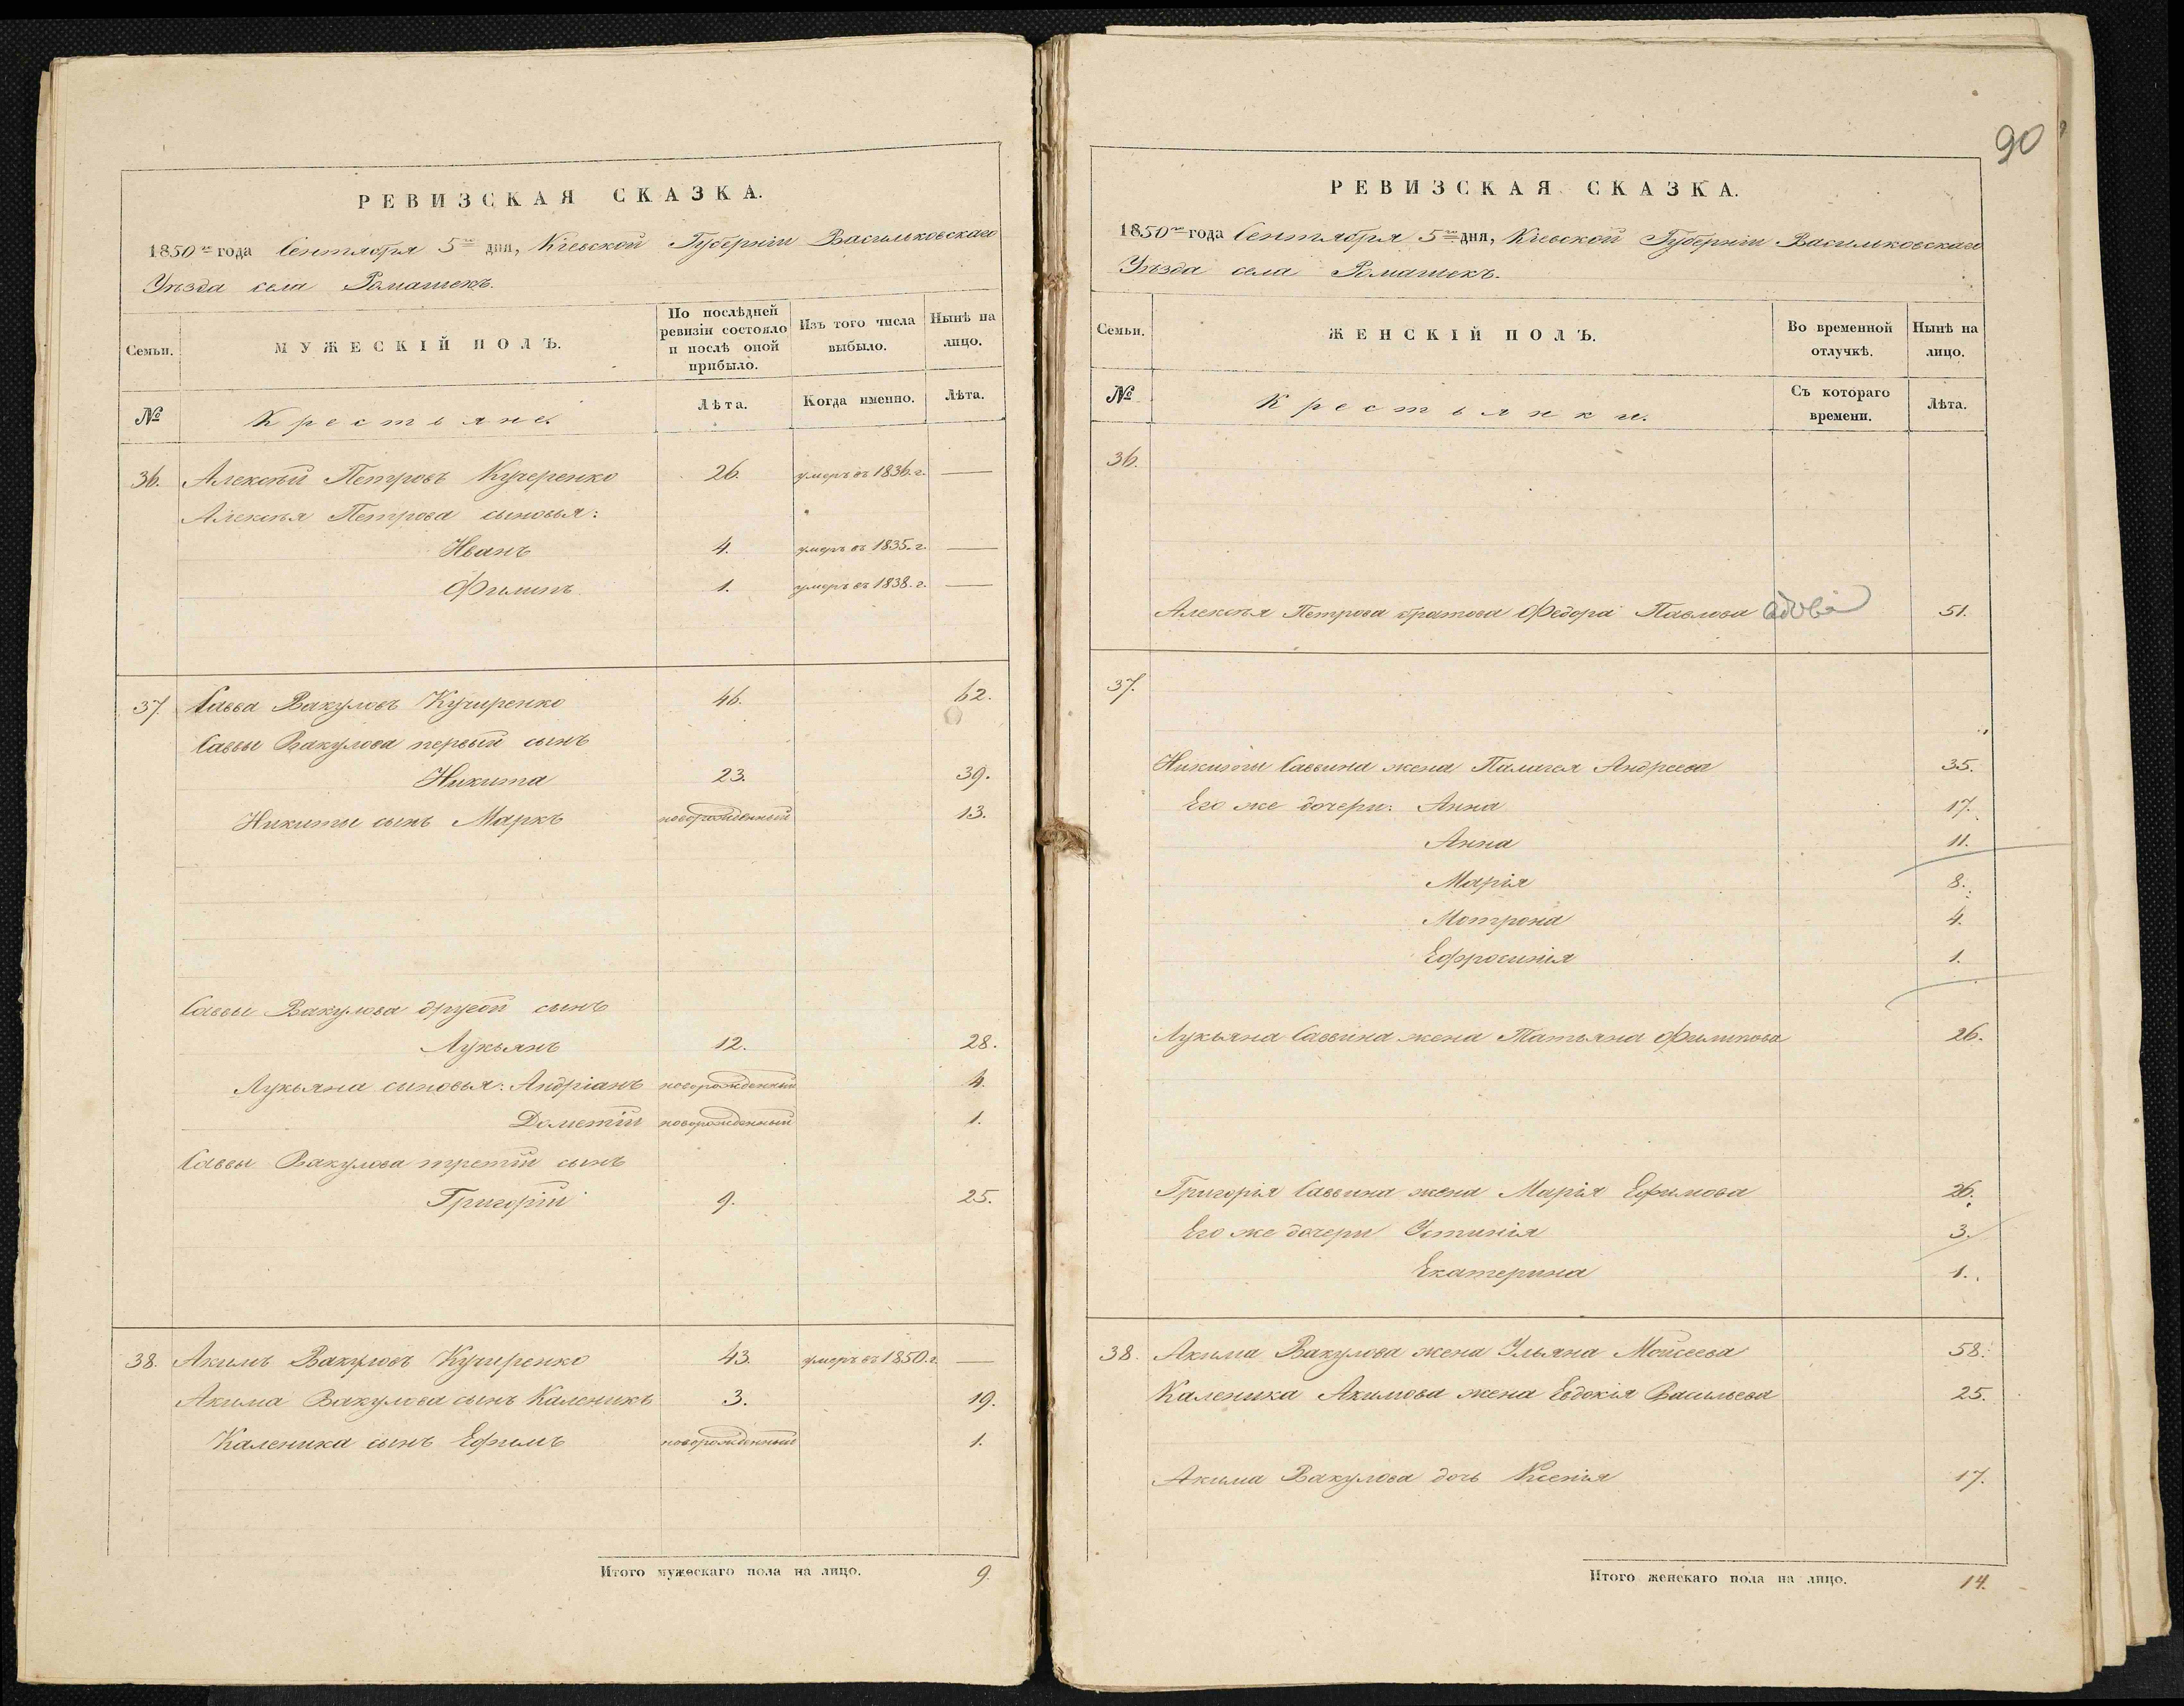 РЕВИЗСКАЯ СКАЗКА.
1850го года Сентября 5го дня, Кіевской Губерніи Васильковскаго
Уѣзда села Ромашекъ.
Семьи.
МУЖЕСКІЙ ПОЛЪ.
По послѣдней ревизіи состояло и послѣ оной прибыло.
Изъ того числа выбыло.
Нынѣ на лицо.
№
Крестьяне.
Лѣта.
Когда именно.
Лѣта.
36. Алексѣй Петровъ Кучеренко 26. умеръ въ 1836. г. —
Алексѣя Петрова сыновья:
Иванъ 4. умеръ въ 1835. г. —
Филипъ 1. умеръ въ 1838. г. —
37. Савва Вакуловъ Кучиренко 46. 62.
Саввы Вакулова первый сынъ
Никита 23. 39.
Никиты сынъ Маркъ новорожденный 13.
Саввы Вакулова другой сынъ
Лукьянъ 12. 28.
Лукьяна сыновья: Андріанъ новорожденный 4.
Дометій новорожденный 1.
Саввы Вакулова третій сынъ
Григорій 9. 25.
38. Акимъ Вакуловъ Кучиренко 43. умеръ въ 1850. г. —
Акима Вакулова сынъ Каленикъ 3. 19.
Каленика сынъ Ефимъ новорожденный 1.
Итого мужескаго пола на лицо. 9.
90
РЕВИЗСКАЯ СКАЗКА.
1850го года Сентября 5го дня, Кіевской Губерніи Васильковскаго
Уѣзда села Ромашекъ.
Семьи.
ЖЕНСКІЙ ПОЛЪ.
Во временной отлучкѣ.
Нынѣ на лицо.
№
Крестьянки.
Съ котораго времени.
Лѣта.
36.
Алексѣя Петрова братова Федора Павлова вдова 51.
37.
Никиты Саввина жена Палагея Андреева 35.
Его же дочери: Анна 17.
Анна 11.
Марія 8.
Мотрона 4.
Ефросинія 1.
Лукьяна Саввина жена Татьяна Филипова 26.
Григорія Саввина жена Марія Ефимова 26.
Его же дочери Устинія 3.
Екатерина 1.
38. Акима Вакулова жена Ульяна Мойсеева 58.
Каленика Акимова жена Евдокія Васильева 25.
Акима Вакулова дочь Ксенія 17.
Итого женскаго пола на лицо. 14.